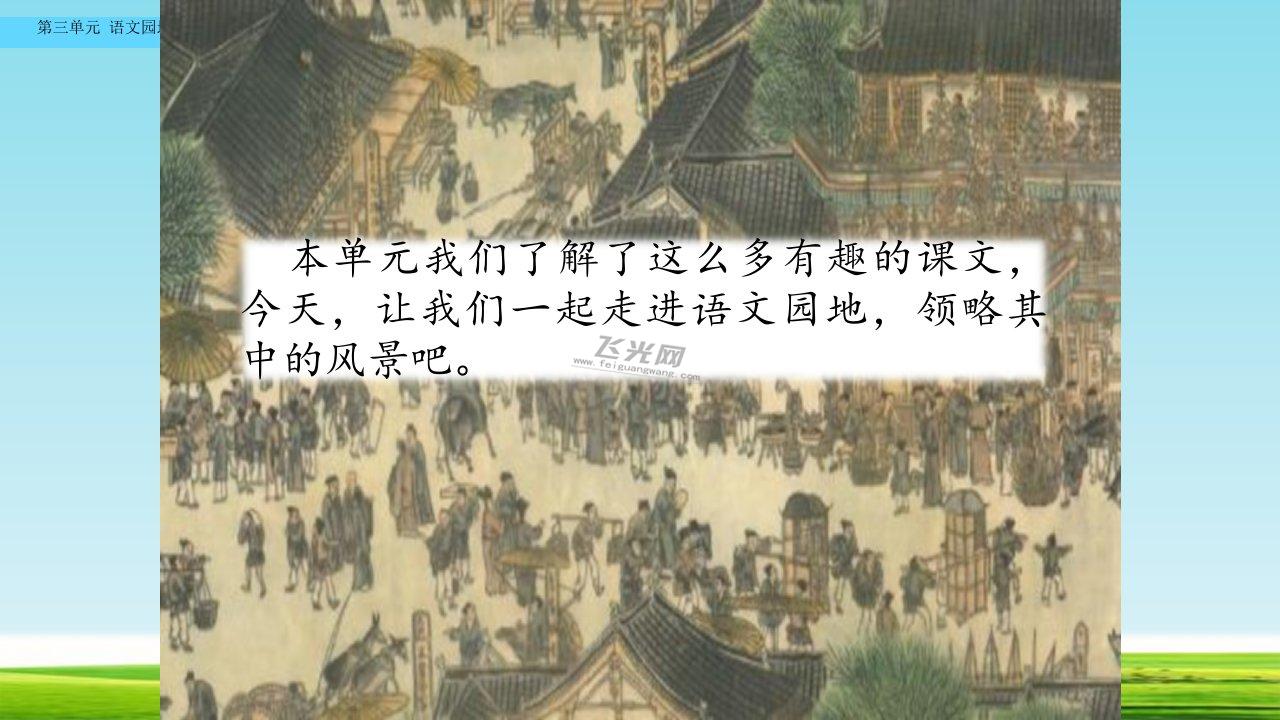 第三单元 语文园
本单元我们了解了这么多有趣的课文，
今天，让我们一起走进语文园地，领略其
中的风景吧。
飞光网
www.feiguangwang.com